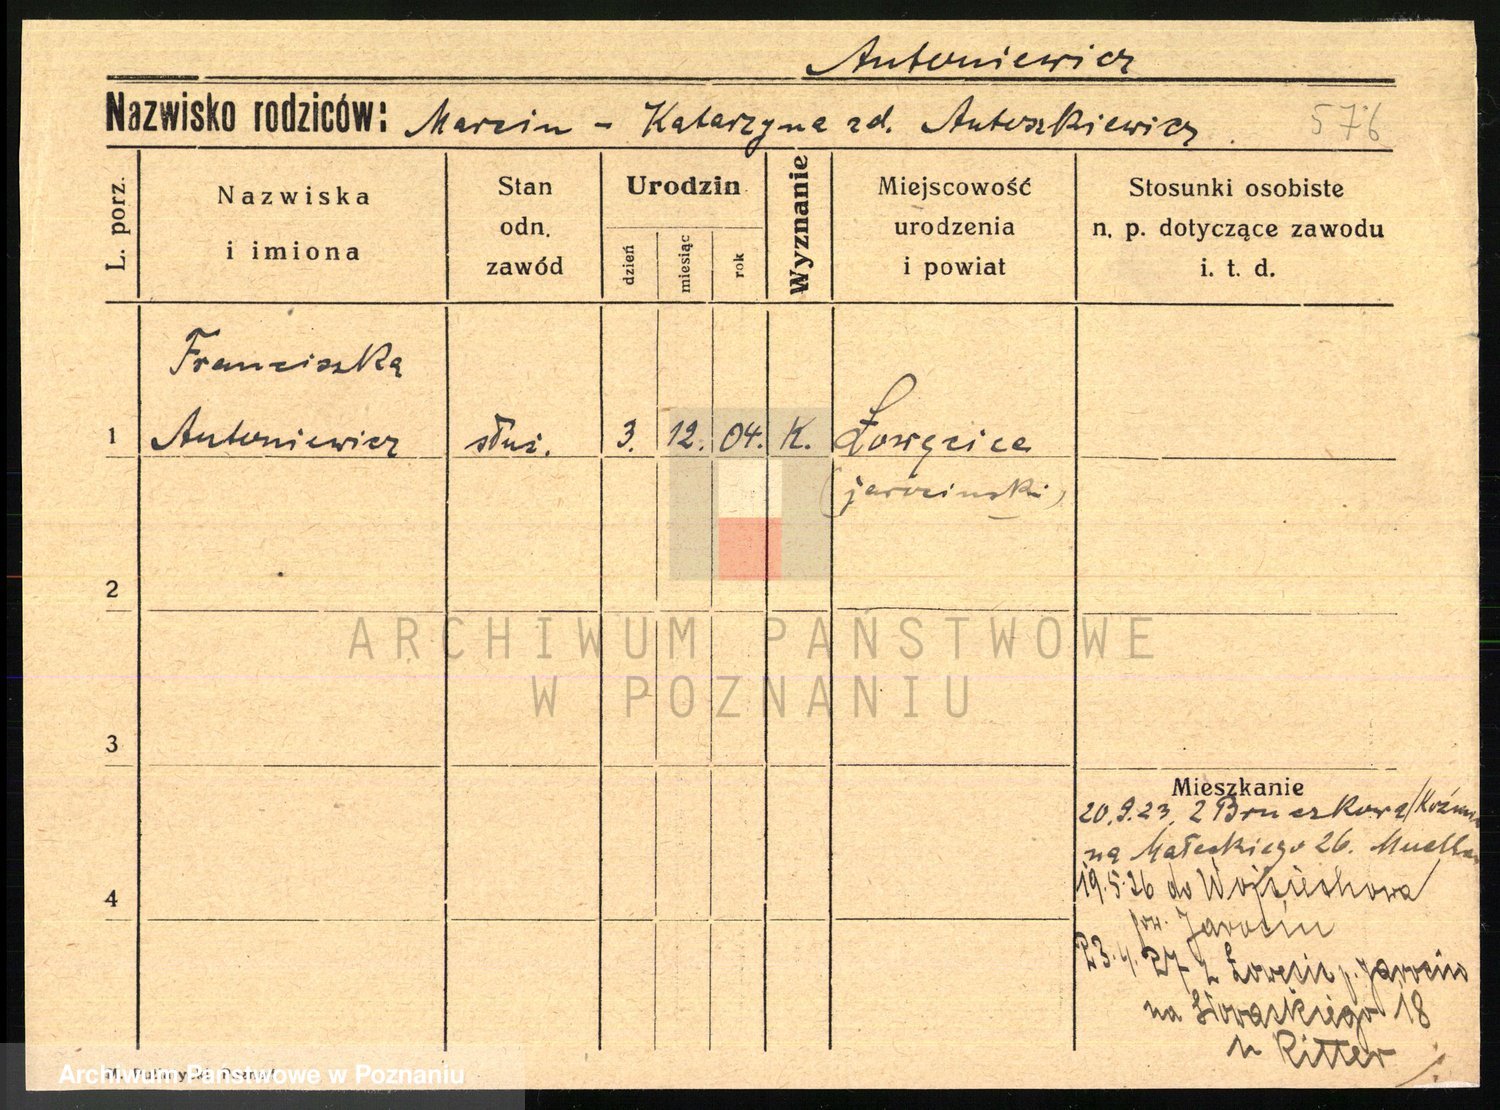 Antoniewicz
Nazwisko rodziców: Marcin - Katarzyna zd. Antoszkiewicz. 576
L. porz.
Nazwiska
i imiona
Stan
odn.
zawód
Urodzin
dzień
miesiąc
rok
Wyznanie
Miejscowość
urodzenia
i powiat
Stosunki osobiste
n. p. dotyczące zawodu
i. t. d.
Franciszka
1 Antoniewicz służ. 3. 12. 04. K. Łowęcice
(jarociński)
2
ARCHIWUM PAŃSTWOWE
W POZNANIU
3
Mieszkanie
20.9.23. z Bruczkowa/
na Małeckiego 26.
4
19.5.26 do Wojciechowa
pow. Jarocin
23. 27 z p. Jarocin
na 18
u Ritter
Archiwum Państwowe w Poznaniu